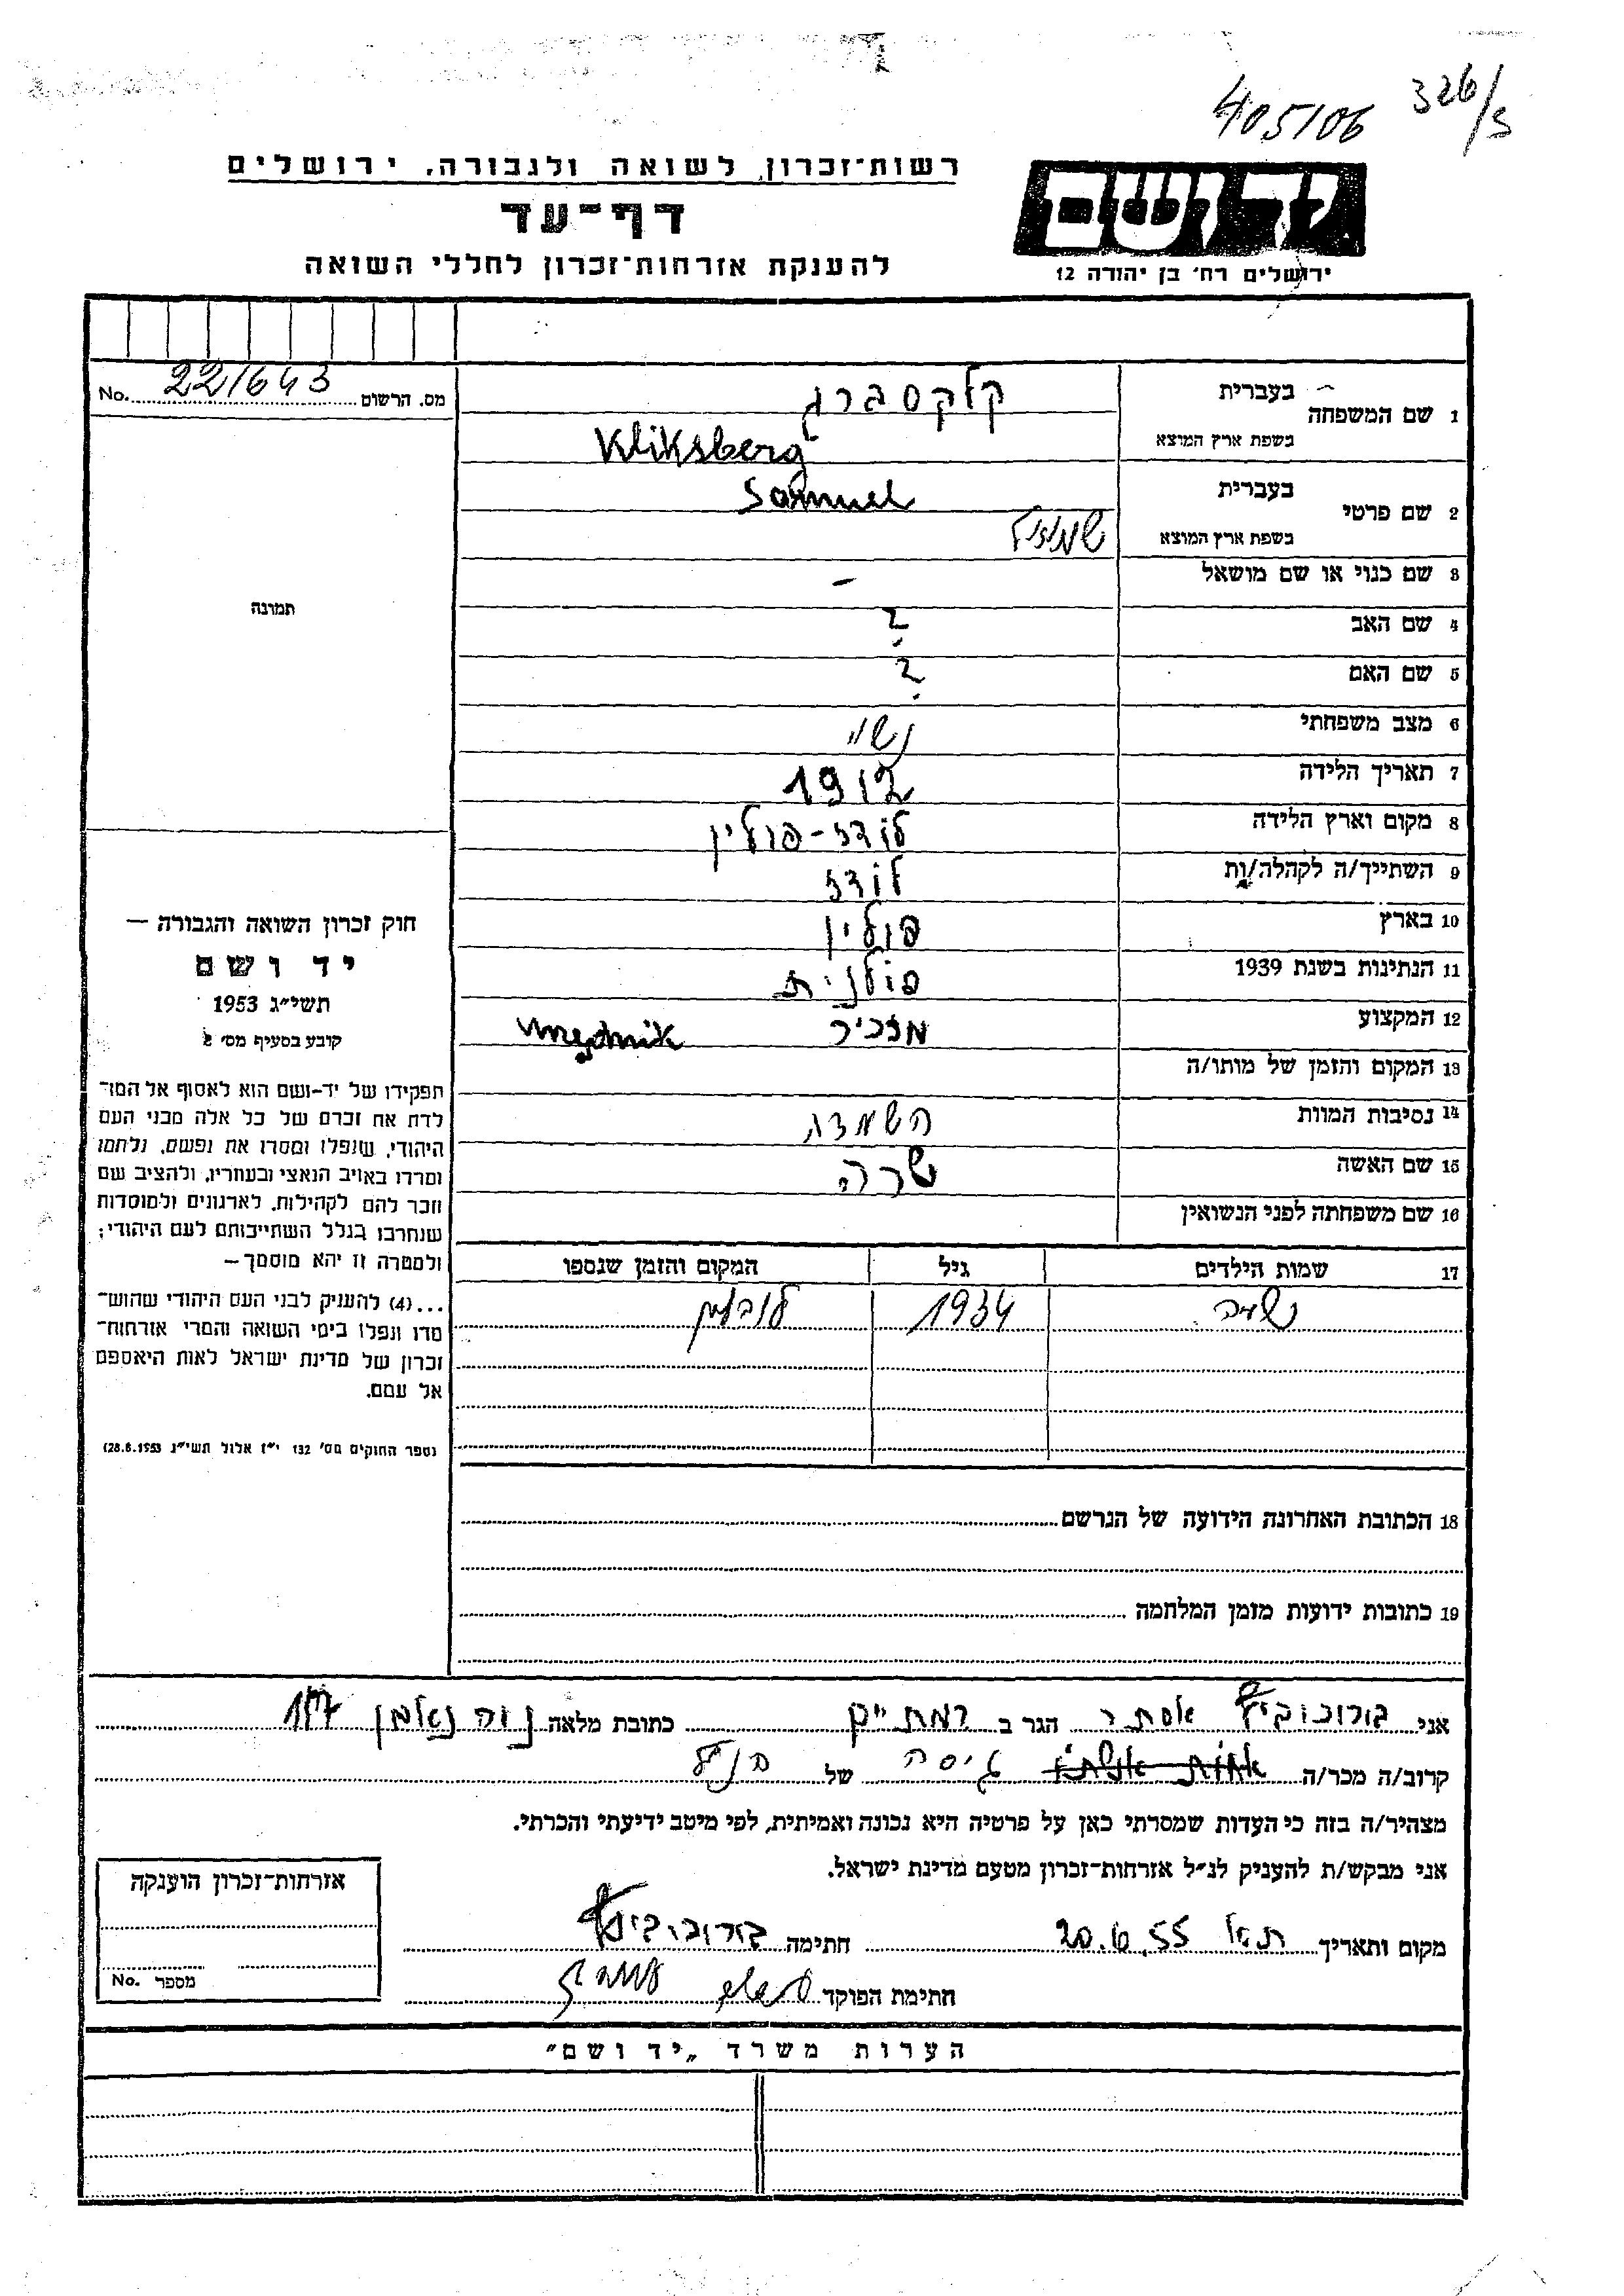 405106 326/3
רשות־זכרון לשואה ולגבורה, ירושלים
דף־עד
להענקת אזרחות־זכרון לחללי השואה
יד ושם
ירושלים רח׳ בן יהודה 12
מס. הרשום 221643 No.
1 שם המשפחה בעברית קלקסברג
בשפת ארץ המוצא Kliksberg
2 שם פרטי בעברית Samuel
בשפת ארץ המוצא שמואל
3 שם כנוי או שם מושאל –
4 שם האב ?
5 שם האם ?
6 מצב משפחתי נשוי
7 תאריך הלידה 1912
8 מקום וארץ הלידה לודז - פולין
9 השתייך/ה לקהלה/ות לודז
10 בארץ פולין
11 הנתינות בשנת 1939 פולנית
12 המקצוע מזכיר
13 המקום והזמן של מותו/ה
14 נסיבות המוות השמדה
15 שם האשה שרה
16 שם משפחתה לפני הנשואין
17 שמות הילדים גיל המקום והזמן שנספו
1934
18 הכתובת האחרונה הידועה של הנרשם
19 כתובות ידועות מזמן המלחמה
תמונה
חוק זכרון השואה והגבורה —
יד ושם
תשי״ג 1953
קובע בסעיף מס׳ 2
תפקידו של יד-ושם הוא לאסוף אל המו־
לדת את זכרם של כל אלה מבני העם
היהודי, שנפלו ומסרו את נפשם, נלחמו
ומרדו באויב הנאצי ובעוזריו, ולהציב שם
וזכר להם לקהילות, לארגונים ולמוסדות
שנחרבו בגלל השתייכותם לעם היהודי;
ולמטרה זו יהא מוסמך —
...(4) להעניק לבני העם היהודי שהוש־
מדו ונפלו בימי השואה והמרי אזרחות־
זכרון של מדינת ישראל לאות היאספם
אל עמם.
(ספר החוקים מס׳ 132 י״ז אלול תשי״ג 28.8.1953)
אני אסתר הגר ב רמת יצחק כתובת מלאה נוה נאמן
קרוב/ה מכר/ה אחות אשתו גיסה של הנ״ל
מצהיר/ה בזה כי העדות שמסרתי כאן על פרטיה היא נכונה ואמיתית, לפי מיטב ידיעתי והכרתי.
אני מבקש/ת להעניק לנ״ל אזרחות־זכרון מטעם מדינת ישראל.
מקום ותאריך ת״א 20.6.55 חתימה
חתימת הפוקד
אזרחות־זכרון הוענקה
מספר No.
הערות משרד „יד ושם״